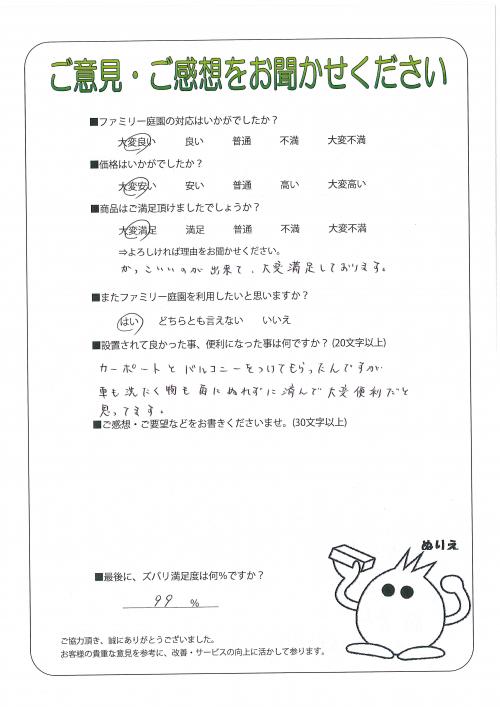 ご意見・ご感想をお聞かせください
■ファミリー庭園の対応はいかがでしたか？
大変良い 良い 普通 不満 大変不満
■価格はいかがでしたか？
大変安い 安い 普通 高い 大変高い
■商品はご満足頂けましたでしょうか？
大変満足 満足 普通 不満 大変不満
⇒よろしければ理由をお聞かせください。
かっこいいのが出来て、大変満足しております。
■またファミリー庭園を利用したいと思いますか？
はい どちらとも言えない いいえ
■設置されて良かった事、便利になった事は何ですか？(20文字以上)
カーポートとバルコニーをつけてもらったんですが
車も洗たく物も雨にぬれずに済んで大変便利だと
思ってます。
■ご感想・ご要望などをお書きくださいませ。(30文字以上)
ぬりえ
■最後に、ズバリ満足度は何％ですか？
99 ％
ご協力頂き、誠にありがとうございました。
お客様の貴重な意見を参考に、改善・サービスの向上に活かして参ります。